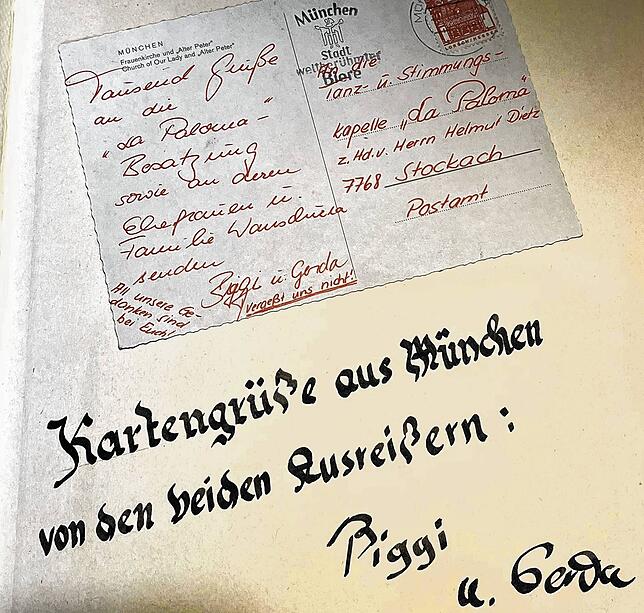 MÜNCHEN
Frauenkirche und „Alter Peter"
Church of Our Lady and „Alter Peter"
Tausend Grüße
an die
"La Paloma-
Besatzung
sowie an deren
Ehefrauen u.
Familie
senden
Biggi u. Gerda
Vergeßt uns nicht!
All unsere Ge-
danken sind
bei Euch!
München
Stadt
weltberühmter
Biere
An die
Tanz- u. Stimmungs-
kapelle „La Paloma"
z. Hd. v. Herrn Helmut Dietz
7768 Stockach
Postamt
Kartengrüße aus München
von den beiden Ausreißern:
Biggi
u. Gerda